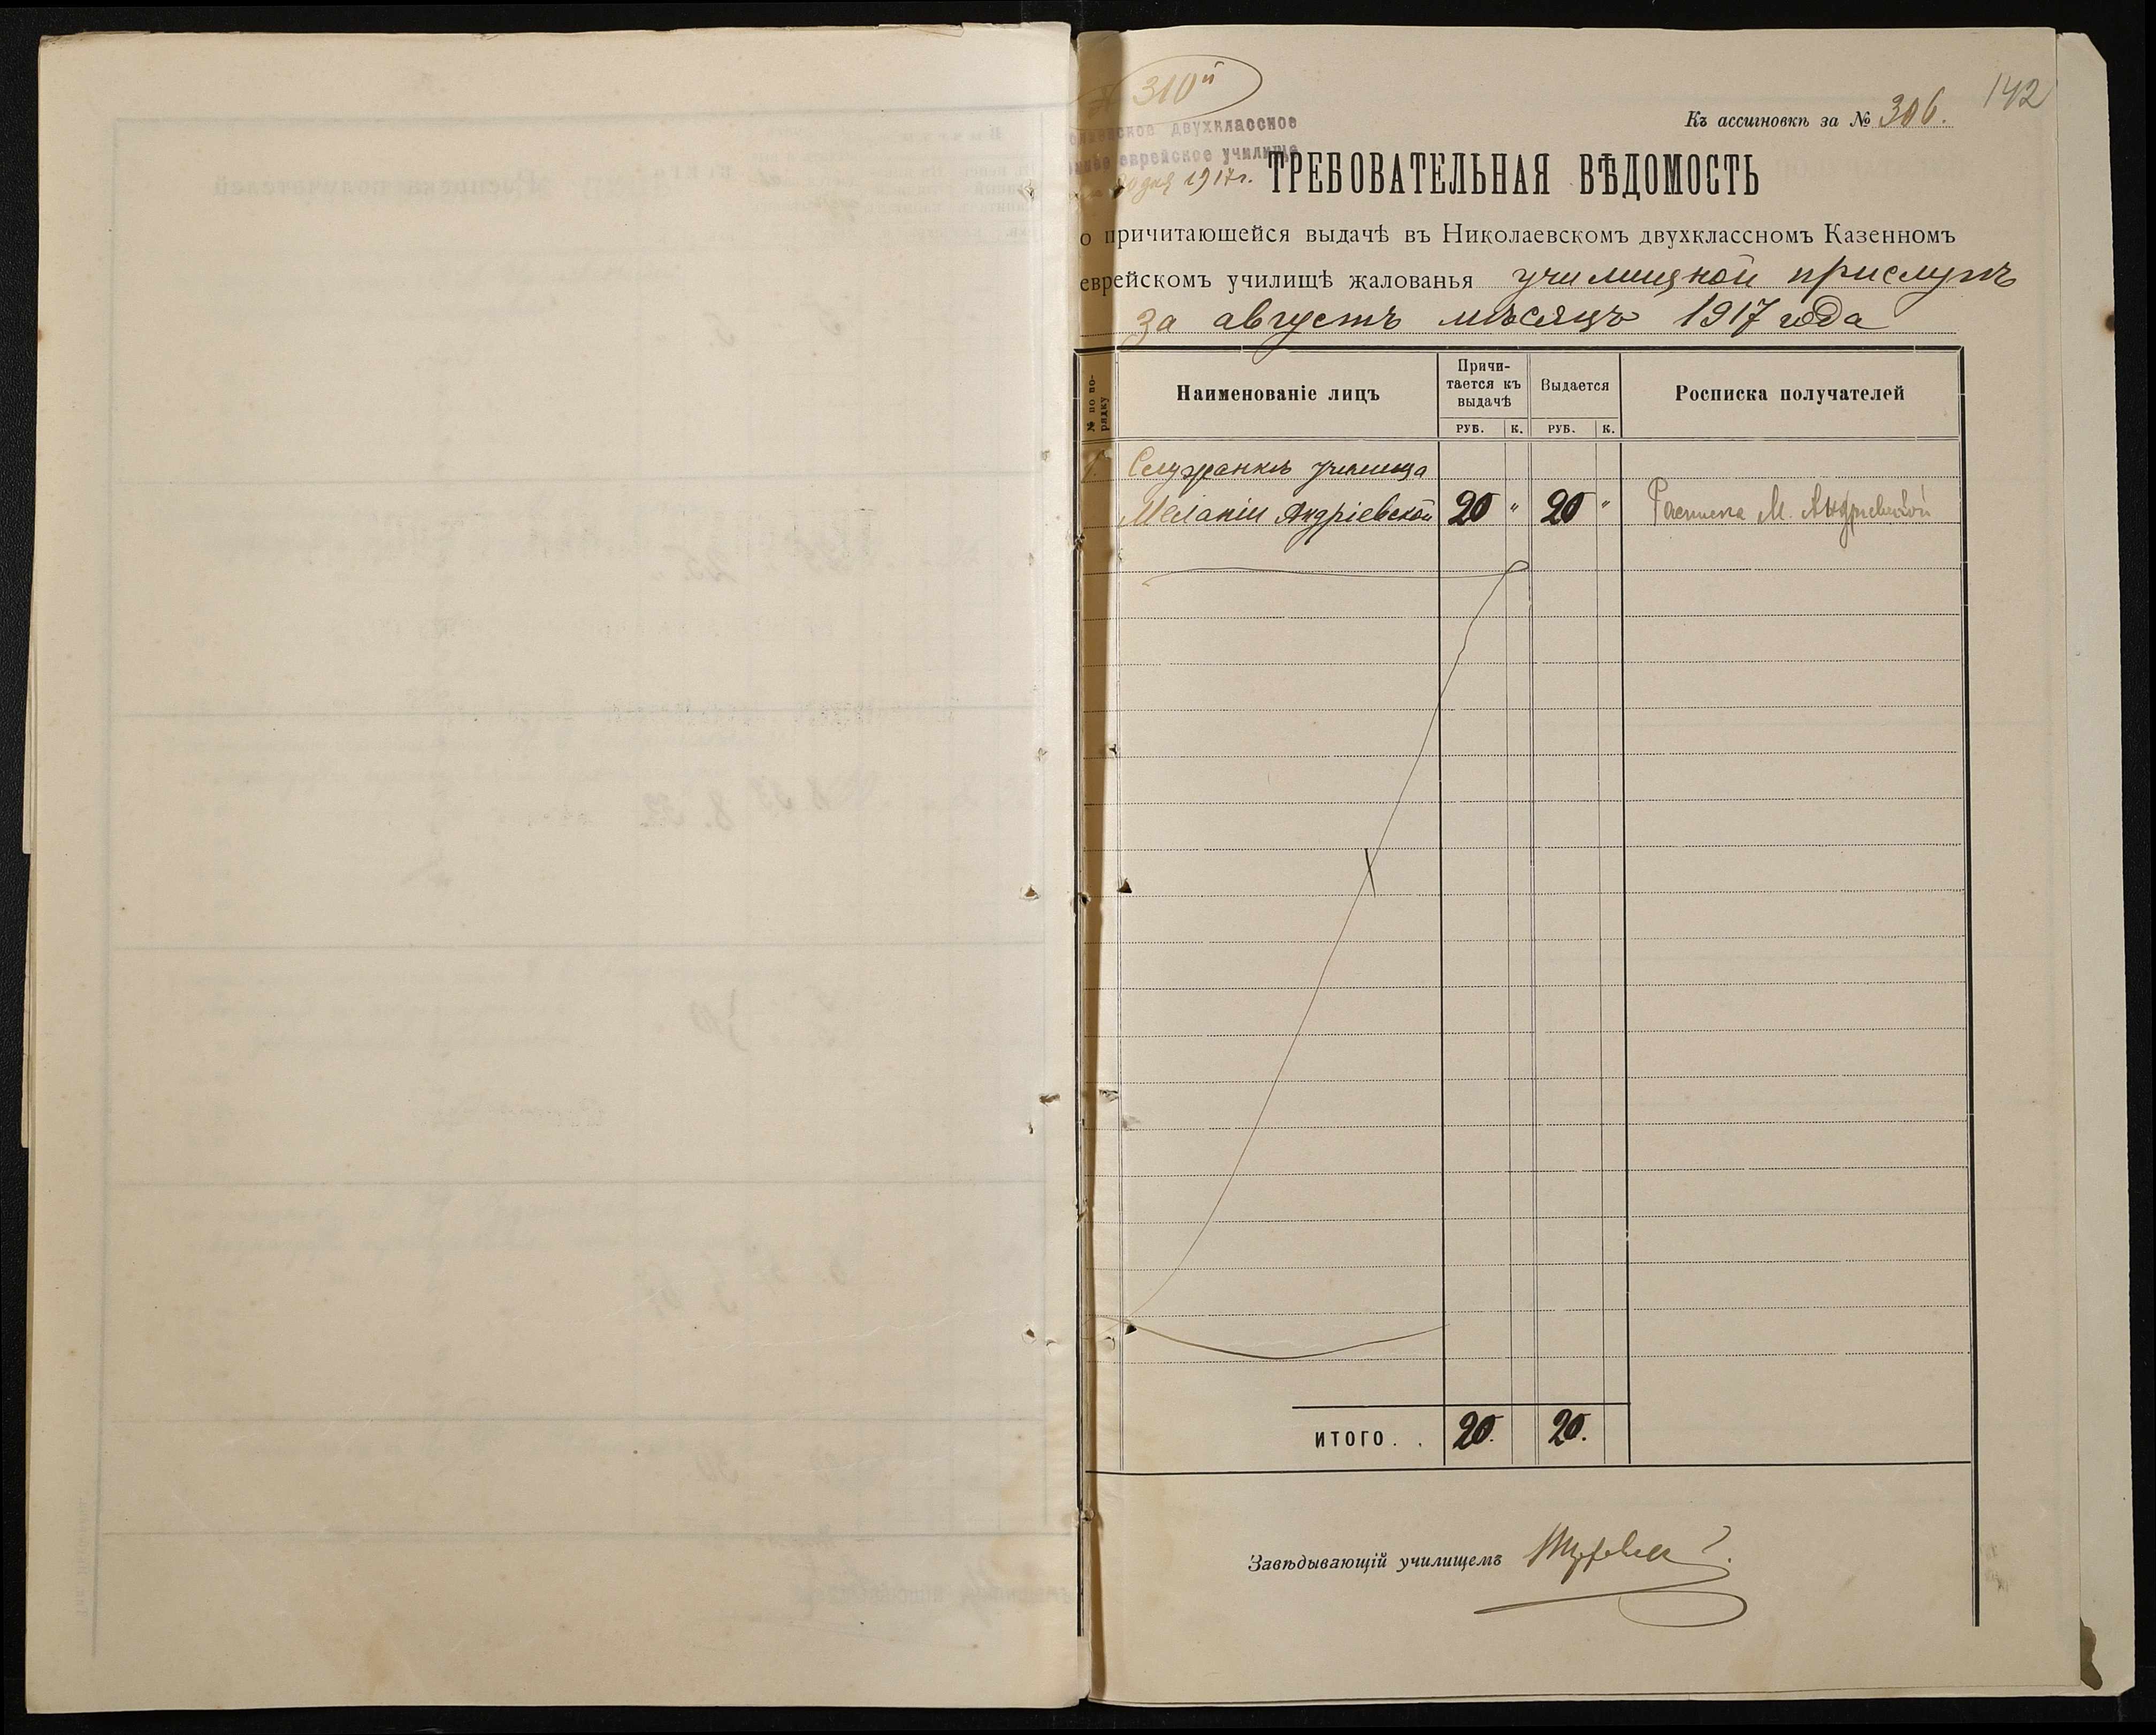 310й
142
Къ ассигновкѣ за № 306.
двухклассное
еврейское училище
1917г.
ТРЕБОВАТЕЛЬНАЯ ВѢДОМОСТЬ
о причитающейся выдачѣ въ Николаевскомъ двухклассномъ Казенномъ
еврейскомъ училищѣ жалованья училищной прислугѣ
за августъ мѣсяцъ 1917 года
№ по по-
рядку
Наименованіе лицъ
Причи-
тается къ
выдачѣ
Выдается
Росписка получателей
РУБ. К. РУБ. К.
1. Служанкѣ училища
Меланіи Андріевской 20 " 20 " М. Андриевской
ИТОГО. . 20. 20.
Завѣдывающій училищемъ